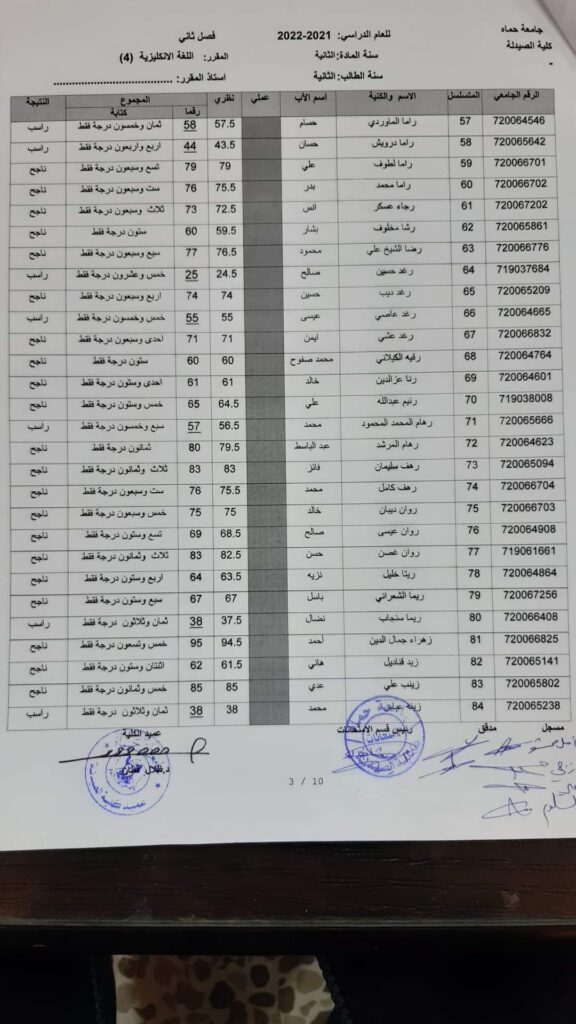 جامعة حماه
كلية الصيدلة
-
للعام الدراسي: 2021-2022
فصل ثاني
سنة المادة: الثانية
المقرر: اللغة الانكليزية (4)
سنة الطالب: الثانية
استاذ المقرر: ....................................
الرقم الجامعي المتسلسل الاسم والكنية اسم الأب عملي نظري المجموع النتيجة
رقما كتابة
720064546 57 راما الماوردي حسام 57.5 58 ثمان وخمسون درجة فقط راسب
720065642 58 راما درويش حسان 43.5 44 اربع واربعون درجة فقط راسب
720066701 59 راما لطوف علي 79 79 تسع وسبعون درجة فقط ناجح
720066702 60 راما محمد بدر 75.5 76 ست وسبعون درجة فقط ناجح
720067202 61 رجاء عسكر انس 72.5 73 ثلاث وسبعون درجة فقط ناجح
720065861 62 رشا مخلوف بشار 59.5 60 ستون درجة فقط ناجح
720066776 63 رضا الشيخ علي محمود 76.5 77 سبع وسبعون درجة فقط ناجح
719037684 64 رغد حسين صالح 24.5 25 خمس وعشرون درجة فقط راسب
720065209 65 رغد ديب حسين 74 74 اربع وسبعون درجة فقط ناجح
720064665 66 رغد عاصي عيسى 55 55 خمس وخمسون درجة فقط راسب
720066832 67 رغد عشي ايمن 71 71 احدى وسبعون درجة فقط ناجح
720064764 68 رقيه الكيلاني محمد صفوح 60 60 ستون درجة فقط ناجح
720064601 69 رنا عزالدين خالد 61 61 احدى وستون درجة فقط ناجح
719038008 70 رنيم عبدالله علي 64.5 65 خمس وستون درجة فقط ناجح
720065666 71 رهام المحمد المحمود محمد 56.5 57 سبع وخمسون درجة فقط راسب
720064623 72 رهام المرشد عبد الباسط 79.5 80 ثمانون درجة فقط ناجح
720065094 73 رهف سليمان فائز 83 83 ثلاث وثمانون درجة فقط ناجح
720066704 74 رهف كامل محمد 75.5 76 ست وسبعون درجة فقط ناجح
720066703 75 روان ديبان خالد 75 75 خمس وسبعون درجة فقط ناجح
720064908 76 روان عيسى صالح 68.5 69 تسع وستون درجة فقط ناجح
719061661 77 روان غصن حسن 82.5 83 ثلاث وثمانون درجة فقط ناجح
720064864 78 ريتا خليل نزيه 63.5 64 اربع وستون درجة فقط ناجح
720067256 79 ريما الشعراني باسل 67 67 سبع وستون درجة فقط ناجح
720066408 80 ريما سنجاب نضال 37.5 38 ثمان وثلاثون درجة فقط راسب
720066825 81 زهراء جمال الدين أحمد 94.5 95 خمس وتسعون درجة فقط ناجح
720065141 82 زيد قناديل هاني 61.5 62 اثنتان وستون درجة فقط ناجح
720065802 83 زينب علي عدي 85 85 خمس وثمانون درجة فقط ناجح
720065238 84 زينه عباس محمد 38 38 ثمان وثلاثون درجة فقط راسب
مسجل مدقق رئيس قسم الامتحانات عميد الكلية
3 / 10